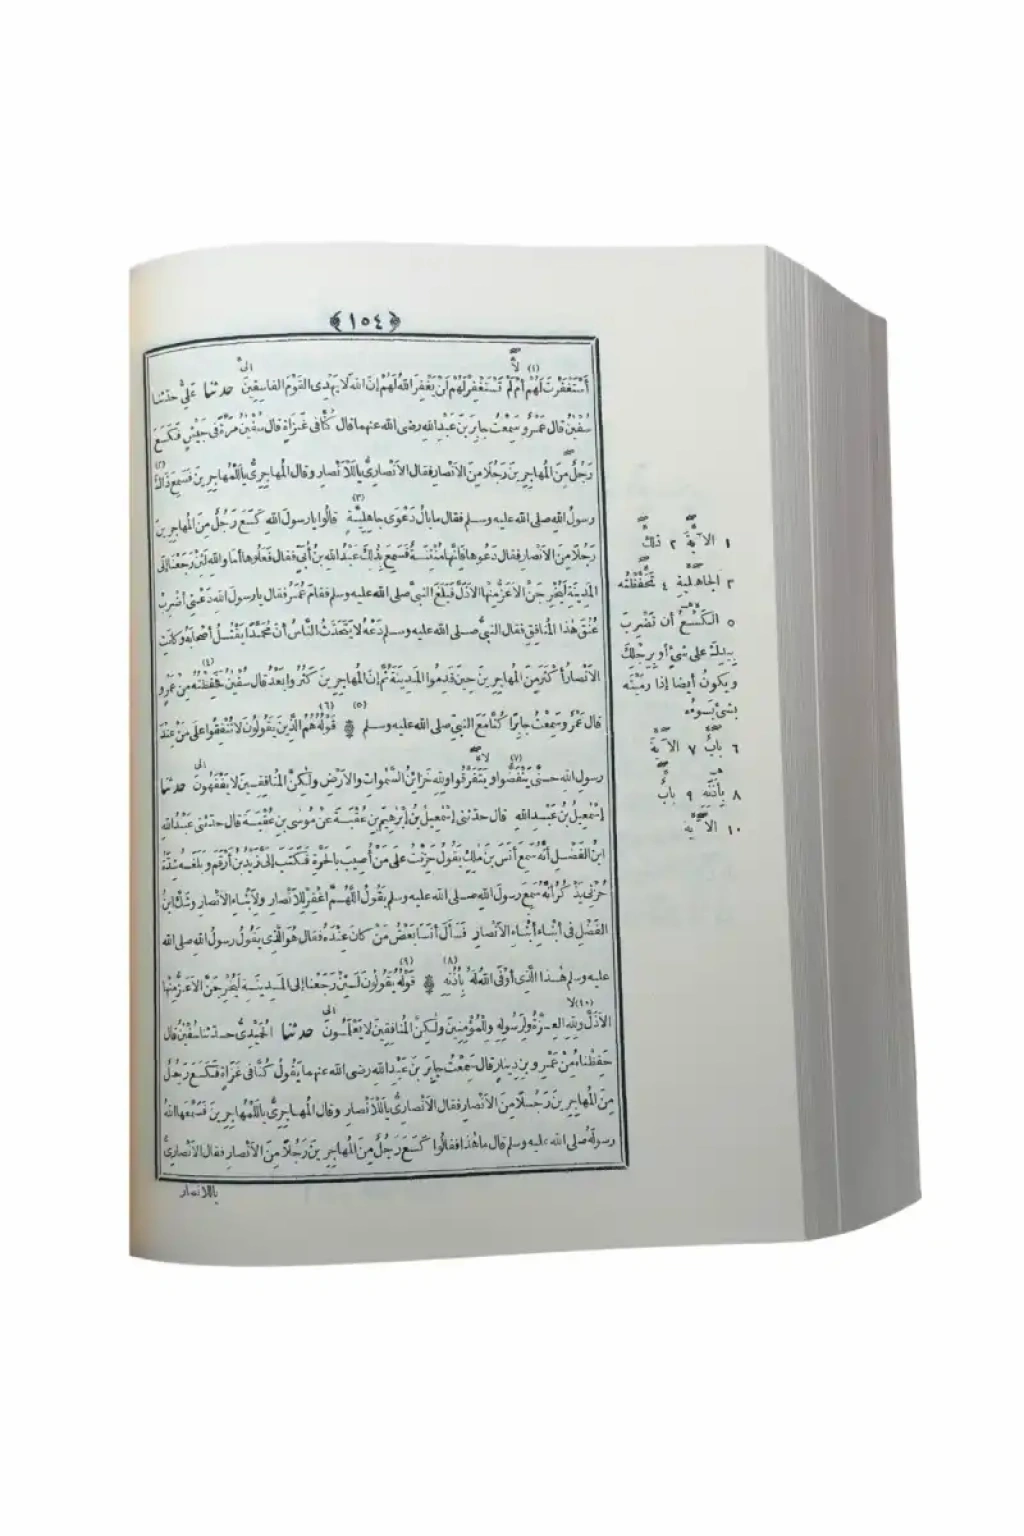 ﴿١٥٤﴾
أَسْتَغْفَرْتَ لَهُمْ أَمْ لَمْ تَسْتَغْفِرْ لَهُمْ لَنْ يَغْفِرَ اللهُ لَهُمْ إِنَّ اللهَ لَا يَهْدِى القَوْمَ الفَاسِقِينَ حدثنا عَلِيٌّ حدثنا
سُفْيٰنُ قال عَمْرٌو سَمِعْتُ جابِرَ بنَ عَبْدِ اللهِ رضى الله عنهما قال كُنَّا فى غَزَاةٍ قال سُفْيٰنُ مَرَّةً فى جَيْشٍ فَكَسَعَ
رَجُلٌ مِنَ المُهاجِرِينَ رَجُلًا مِنَ الأَنْصارِ فقال الأَنْصارِىُّ يالَلْأَنْصارِ وقال المُهاجِرِىُّ يالَلْمُهاجِرِينَ فَسَمِعَ ذَاكَ (٢)
رسولُ اللهِ صلى الله عليه وسلم فقال ما بالُ دَعْوَى جاهِلِيَّةٍ (٣) قالُوا يا رسولَ اللهِ كَسَعَ رَجُلٌ مِنَ المُهاجِرِينَ
رَجُلًا مِنَ الأَنْصارِ فقال دَعُوها فَإِنَّها مُنْتِنَةٌ فَسَمِعَ بِذٰلِكَ عَبْدُ اللهِ بنُ أُبَىٍّ فقال فَعَلُوها أَما واللهِ لَئِنْ رَجَعْنا إلى
المَدِينَةِ لَيُخْرِجَنَّ الأَعَزُّ مِنْها الأَذَلَّ فَبَلَغَ النبىَّ صلى الله عليه وسلم فقامَ عُمَرُ فقال يا رسولَ اللهِ دَعْنِى أَضْرِبْ
عُنُقَ هٰذا المُنافِقِ فقال النبىُّ صلى الله عليه وسلم دَعْهُ لا يَتَحَدَّثُ النَّاسُ أَنَّ مُحَمَّدًا يَقْتُلُ أَصْحابَهُ وكانَتِ
الأَنْصارُ أَكْثَرَ مِنَ المُهاجِرِينَ حِينَ قَدِمُوا المَدِينَةَ ثُمَّ إِنَّ المُهاجِرِينَ كَثُرُوا بَعْدُ قال سُفْيٰنُ فَحَفِظْتُهُ (٤) مِنْ عَمْرٍو
قال عَمْرٌو سَمِعْتُ جابِرًا كُنَّا مَعَ النبىِّ صلى الله عليه وسلم (٥) ۞ (٦) قَوْلُهُ هُمُ الَّذِينَ يَقُولُونَ لا تُنْفِقُوا على مَنْ عِنْدَ
رسولِ اللهِ حتَّى يَنْفَضُّوا (٧) ويَتَفَرَّقُوا وللهِ خَزائِنُ السَّمٰواتِ والأَرْضِ ولٰكِنَّ المُنافِقِينَ لا يَفْقَهُونَ حدثنا
إِسْمٰعِيلُ بنُ عَبْدِ اللهِ قال حدثنى إِسْمٰعِيلُ بنُ إِبْرٰهِيمَ بنِ عُقْبَةَ عنْ مُوسَى بنِ عُقْبَةَ قال حدثنى عَبْدُ اللهِ
ابنُ الفَضْلِ أَنَّهُ سَمِعَ أَنَسَ بنَ مٰلِكٍ يَقُولُ حَزِنْتُ على مَنْ أُصِيبَ بالحَرَّةِ فَكَتَبَ إلَىَّ زَيْدُ بنُ أَرْقَمَ وبَلَغَهُ شِدَّةُ
حُزْنِى يَذْكُرُ أَنَّهُ سَمِعَ رسولَ اللهِ صلى الله عليه وسلم يَقُولُ اللَّهُمَّ اغْفِرْ لِلْأَنْصارِ ولِأَبْناءِ الأَنْصارِ وشَكَّ ابنُ
الفَضْلِ فى أَبْناءِ أَبْناءِ الأَنْصارِ فَسَأَلَ أَنَسًا بَعْضُ مَنْ كانَ عِنْدَهُ فقال هُوَ الَّذِى يَقُولُ رسولُ اللهِ صلى الله
عليه وسلم هٰذا الَّذِى أَوْفَى اللهُ لَهُ بِأُذُنِهِ (٨) ۞ (٩) قَوْلُهُ يَقُولُونَ لَئِنْ رَجَعْنا إلى المَدِينَةِ لَيُخْرِجَنَّ الأَعَزُّ مِنْها
الأَذَلَّ (١٠) وللهِ العِزَّةُ ولِرَسُولِهِ ولِلْمُؤْمِنِينَ ولٰكِنَّ المُنافِقِينَ لا يَعْلَمُونَ حدثنا الحُمَيْدِىُّ حدثنا سُفْيٰنُ قال
حَفِظْناهُ مِنْ عَمْرِو بنِ دِينارٍ قال سَمِعْتُ جابِرَ بنَ عَبْدِ اللهِ رضى الله عنهما يَقُولُ كُنَّا فى غَزَاةٍ فَكَسَعَ رَجُلٌ
مِنَ المُهاجِرِينَ رَجُلًا مِنَ الأَنْصارِ فقال الأَنْصارِىُّ يالَلْأَنْصارِ وقال المُهاجِرِىُّ يالَلْمُهاجِرِينَ فَسَمَّعَها اللهُ
رسولَهُ صلى الله عليه وسلم قال ما هٰذا فقالُوا كَسَعَ رَجُلٌ مِنَ المُهاجِرِينَ رَجُلًا مِنَ الأَنْصارِ فقال الأَنْصارِىُّ
ياللانصار
١ الآيَةَ ٢ ذٰلِكَ
٣ الجَاهِلِيَّةِ ٤ تَحَفَّظْتُهُ
٥ الكَسْعُ أَن تَضْرِبَ
بِيَدِكَ على شئٍ أو بِرِجْلِكَ
ويكونُ أيضا إذا رَمَيْتَه
بشئ يَسُوءُه
٦ بابُ ٧ الآيَةَ
٨ بِأُذُنِهِ ٩ بابُ
١٠ الآيَةَ